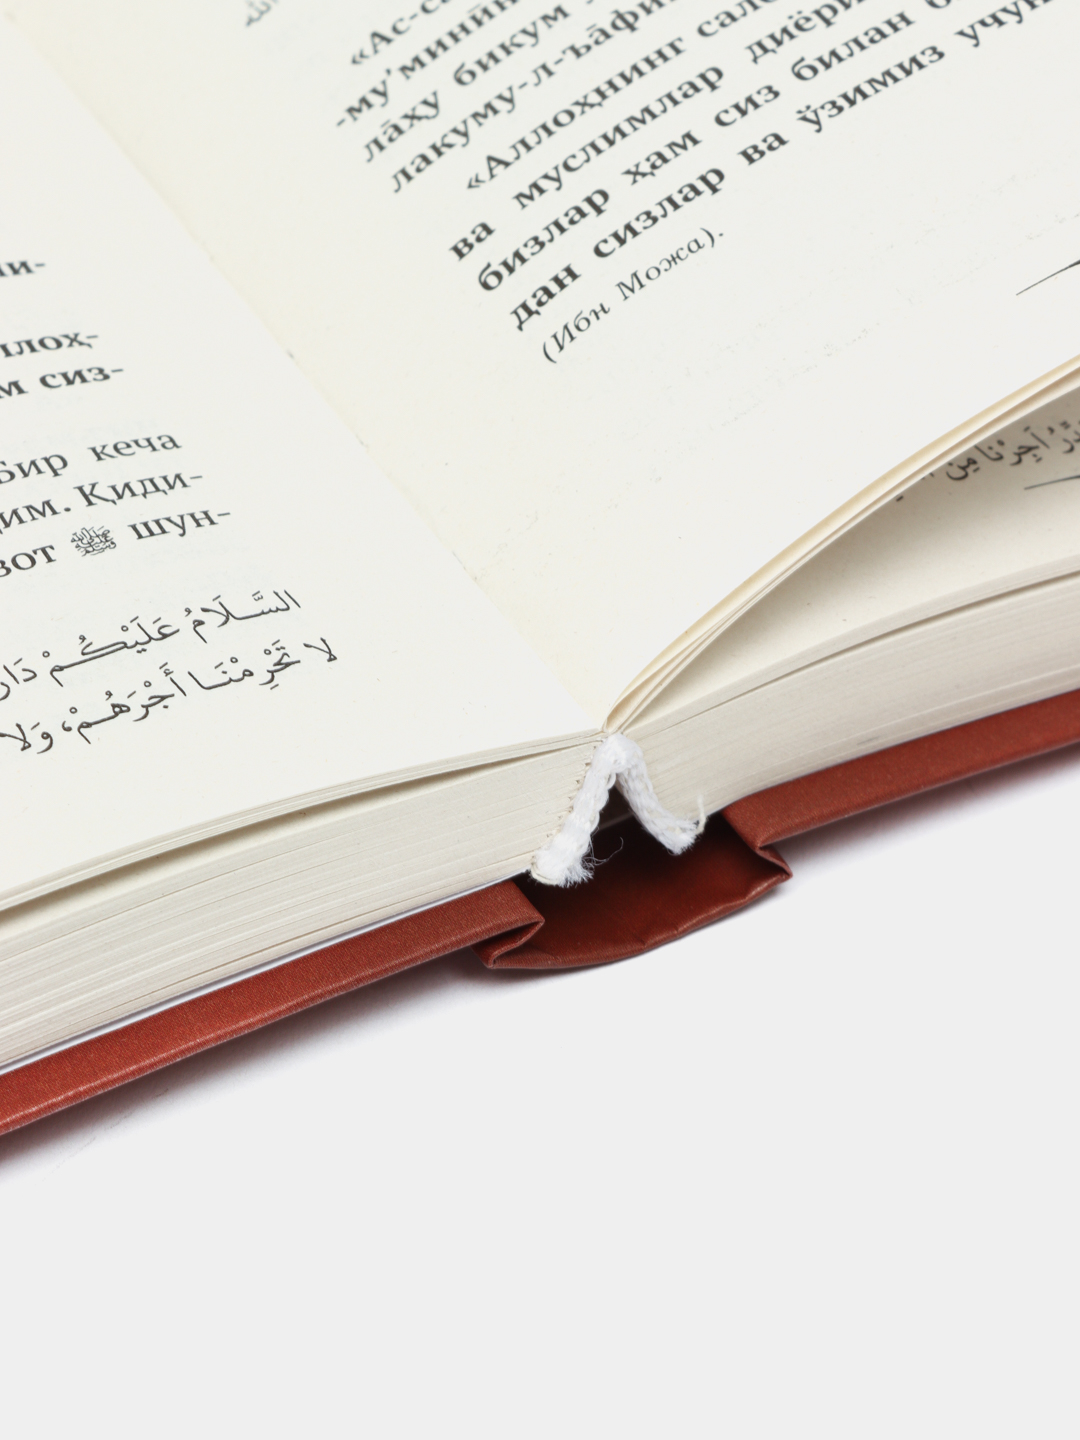 ни-
ллоҳ-
м сиз-
Бир кеча
дим. Қиди-
зот ﷺ шун-
السَّلَامُ عَلَيْكُمْ دَارَ
لَا تَحْرِمْنَا أَجْرَهُمْ، وَلَا
الله
«Ас-са
-му’минӣн
лāҳу бикум
лакуму-л-ъāфи
«Аллоҳнинг сало
ва муслимлар диёри
бизлар ҳам сиз билан б
дан сизлар ва ўзимиз учун
(Ибн Можа).
أَجِرْنَا مِنَ